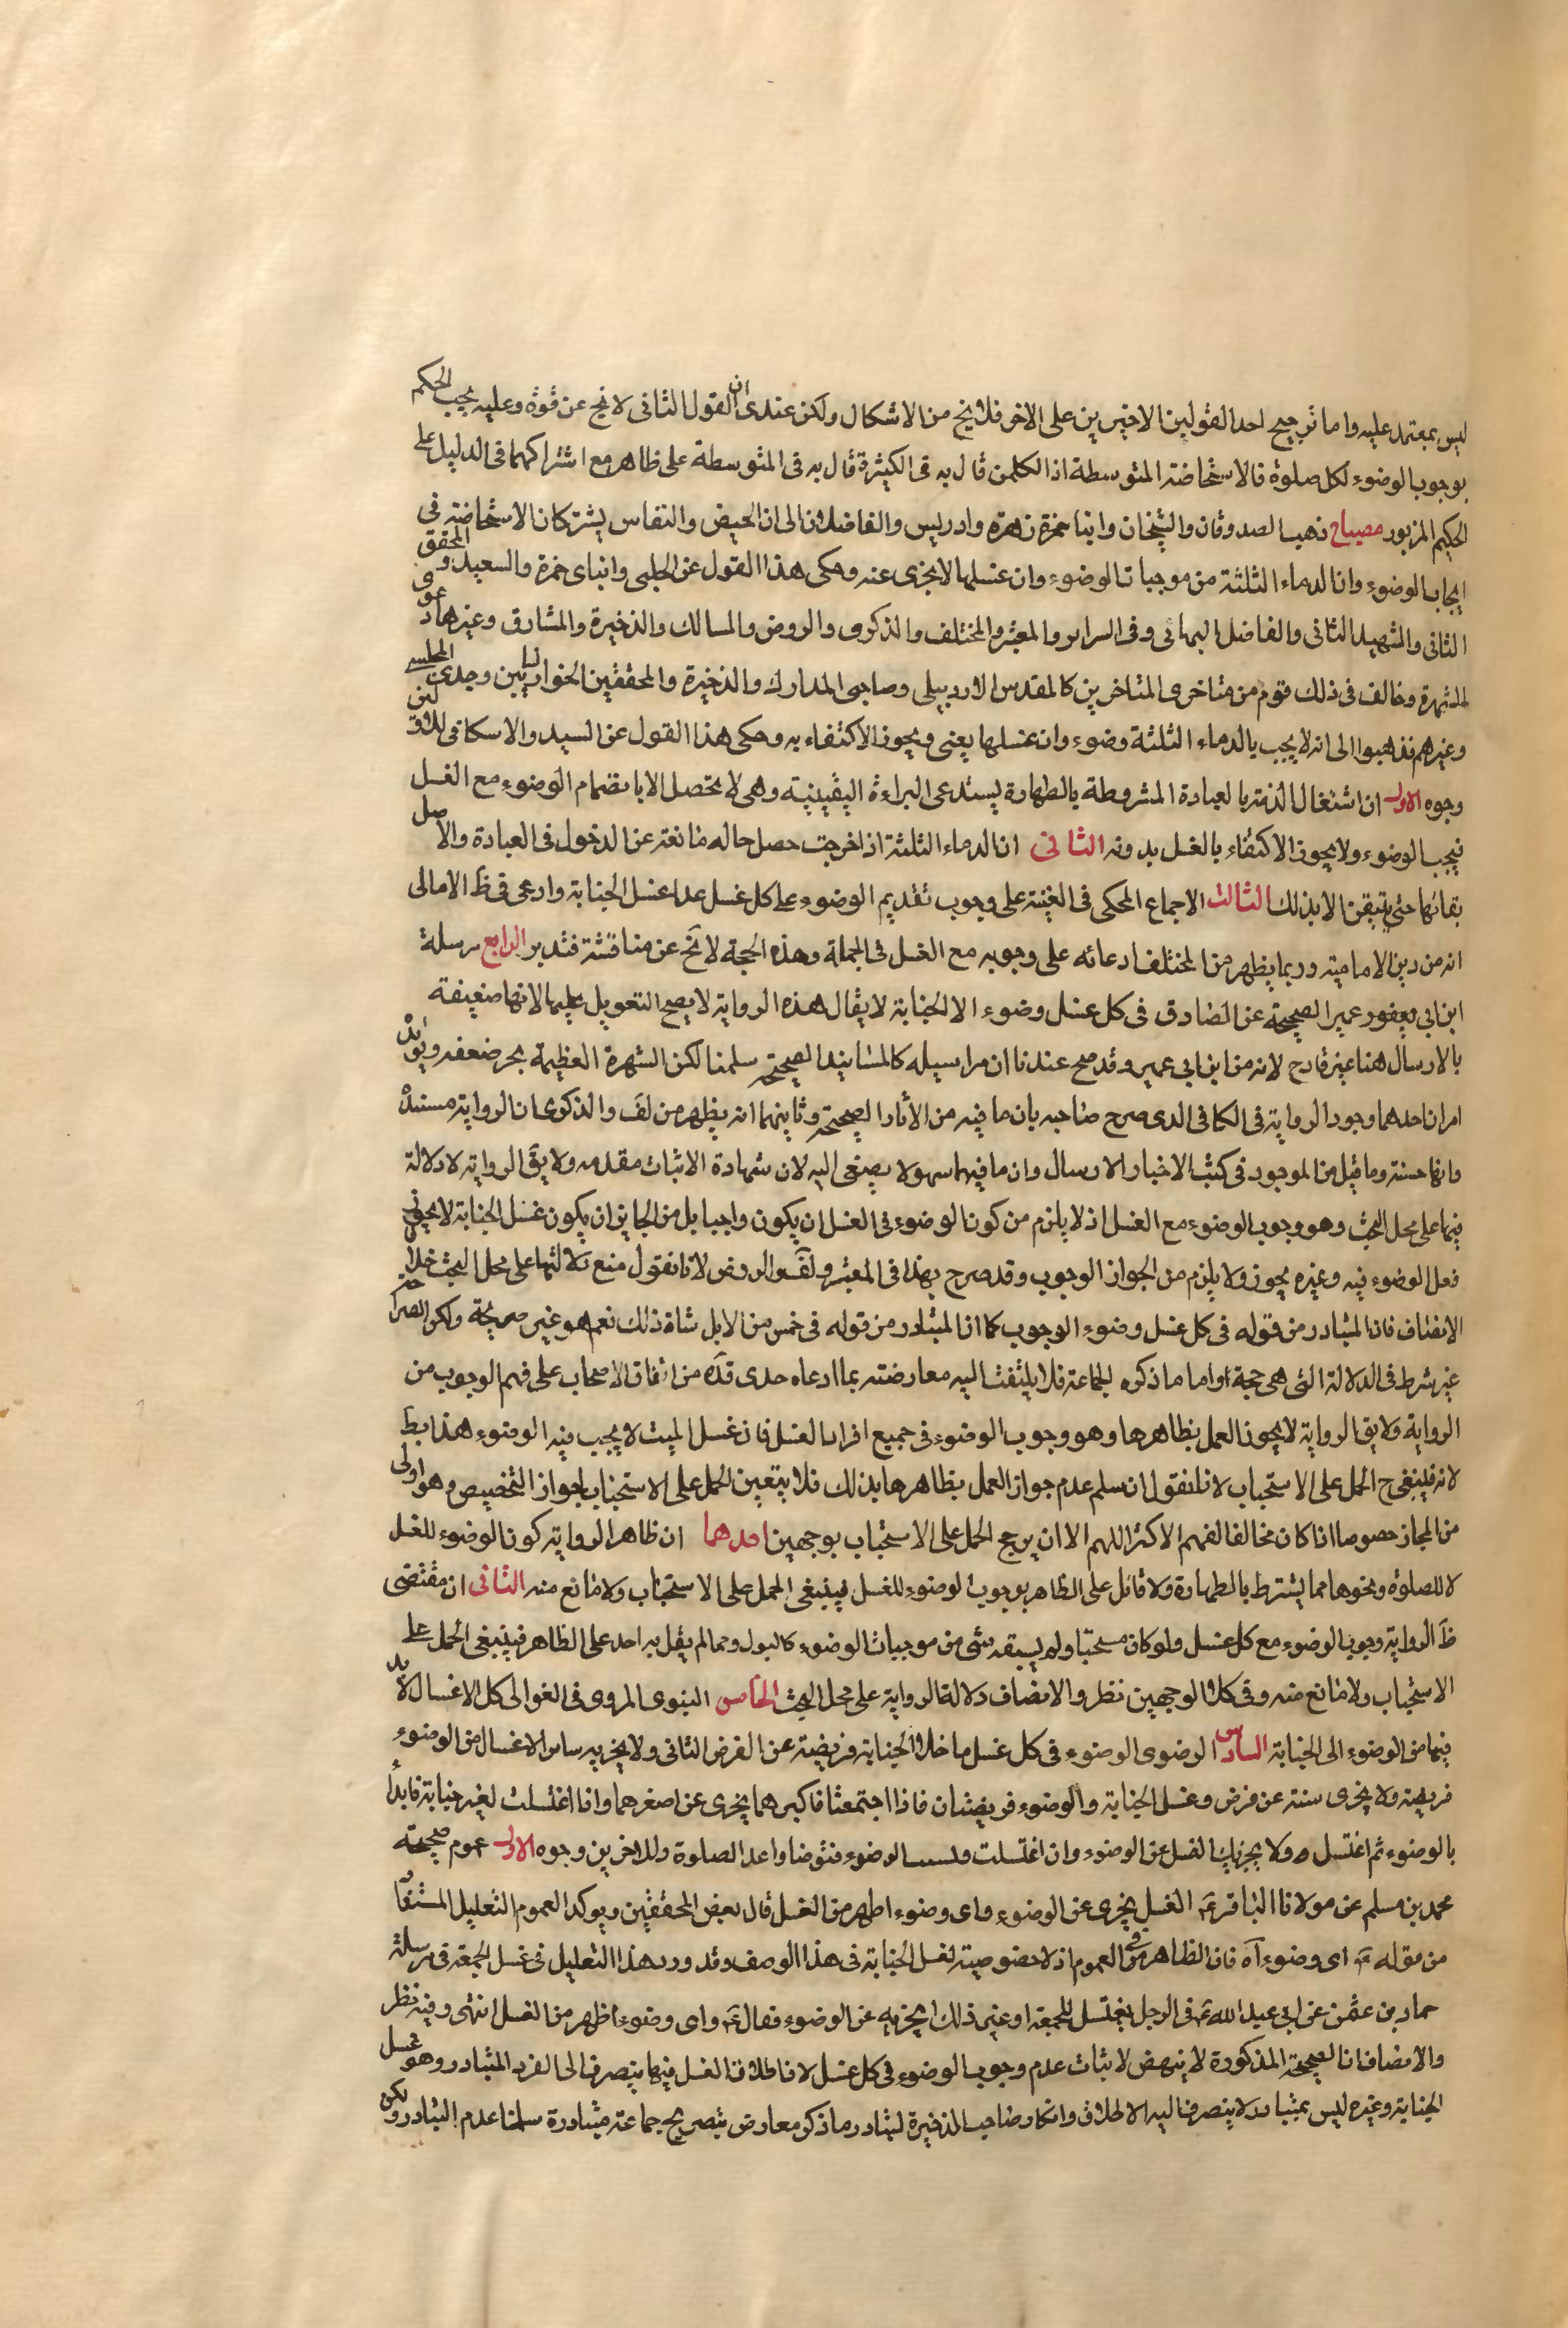 ليس بمعتمد عليه واما ترجيح احد القولين الاخيرين على الاخر فلا يخ من الاشكال ولكن عندى ان القول الثانى لا يخ عن قوة وعليه يجب الحكم
بوجوب الوضوء لكل صلوة فالاستحاضة المتوسطة اذ الكلمن قال به فى الكثيرة قال به فى المتوسطة على ظاهر مع اشتراكهما فى الدليل على
الحكم المزبور مصباح ذهب الصدوقان والشيخان وابنا حمزة زهرة وادريس والفاضلان الى ان الحيض والنفاس يشتركان الاستحاضة فى
ايجاب الوضوء وان الدماء الثلثة من موجبات الوضوء وان غسلها لا يجزى عنه وحكى هذا القول عن الحلبى وابناى حمزة والسعيد والمحقق
الثانى والشهيد الثانى والفاضل البهائى وفى السرائر والمعتبر والمختلف والذكرى والروض والمسالك والذخيرة والمشارق وغيرها دعوى
الشهرة وخالف فى ذلك قوم من متاخرى المتاخرين كالمقدس الاردبيلى وصاحبى المدارك والذخيرة والمحققين الخوانساريين وجدى المجلسى
وغيرهم فذهبوا الى انه لا يجب بالدماء الثلثة وضوء وان غسلها يغنى ويجوز الاكتفاء به وحكى هذا القول عن السيد والاسكافى للاولين
وجوه الاول ان اشتغال الذمة بالعبادة المشروطة بالطهارة يستدعى البراءة اليقينية وهى لا يحصل الا بانضمام الوضوء مع الغسل
فيجب الوضوء ولا يجوز الاكتفاء بالغسل بدونه الثانى ان الدماء الثلثة اذا خرجت حصل حاله مانعة عن الدخول فى العبادة والاصل
بقائها حتى يتيقن الا بذلك الثالث الاجماع المحكى فى الغنية على وجوب تقديم الوضوء على كل غسل عدا غسل الجنابة وادعى فى ظ الامالى
انه من دين الامامية وربما يظهر من المختلف ادعائه على وجوبه مع الغسل فى الجملة وهذه الحجة لا يخ عن مناقشة فتدبر الرابع مرسلة
ابن ابى يعفور عمير الصحيحة عن الصادق فى كل غسل وضوء الا الجنابة لا يقال هذه الرواية لا يصح التعويل عليها لانها ضعيفة
بالارسال هنا غير قادح لانه من ابن ابى عمير وقد صح عندنا ان مراسيله كالمسانيد الصحيحة سلمنا لكن الشهرة العظيمة يجر ضعفه ويؤيده
امران احدهما وجود الرواية فى الكافى الذى صرح صاحبه بان ما فيه من الاثار الصحيحة وثانيهما انه يظهر من لف والذكرى ان الرواية مسندة
وانها حسنة وما قيل من الموجود فى كتب الاخبار الارسال وان ما فيهما سهو لا يصغى اليه لان شهادة الاثبات مقدمه ولا يق الرواية لا دلالة
فيها على محل البحث وهو وجوب الوضوء مع الغسل اذ لا يلزم من كون الوضوء فى الغسل ان يكون واجبا بل من الجايز ان يكون غسل الجنابة لا يجوز
فعل الوضوء فيه وغيره يجوز ولا يلزم من الجواز الوجوب وقد صرح بهذا فى المعتبر ولف والروض لانا نقول منع دلالتها على محل البحث خلاف
الانصاف فان المتبادر من قوله فى كل غسل وضوء الوجوب كما ان المتبادر من قوله فى خمس من الابل شاة ذلك نعم هو غير صريحة ولكن الصراحة
غير شرط فى الدلالة التى هى حجة واما ما ذكره الجماعة فلا يلتفت اليه معارضته بما ادعاه جدى قده من اتفاق الاصحاب على فهم الوجوب من
الرواية ولا يق الرواية لا يجوز العمل بظاهرها وهو وجوب الوضوء فى جميع افراد الغسل فان غسل الميت لا يجب فيه الوضوء هذا بط
لانه فلينبغى ح الحمل على الاستحباب لانا نقول ان سلم عدم جواز العمل بظاهرها بذلك فلا يتعين الحمل على الاستحباب لجواز التخصيص وهو اولى
من المجاز خصوصا اذا كان مخالفا لفهم الاكثر اللهم الا ان يرجح الحمل على الاستحباب بوجهين احدهما ان ظاهر الرواية كون الوضوء للغسل
لا للصلوة ونحوها مما يشترط بالطهارة ولا قائل على الظاهر بوجوب الوضوء للغسل فينبغى الحمل على الاستحباب ولا مانع منه الثانى ان مقتضى
ظ الرواية وجوب الوضوء مع كل غسل ولو كان مستحبا ولم يسبقه شى من موجبات الوضوء كالبول ومما لم يقل به احد على الظاهر فينبغى الحمل على
الاستحباب ولا مانع منه وفى كلا الوجهين نظر والانصاف دلالة الرواية على محل البحث الخامس النبوى المروى فى الغوالى كل الاغسال لا بد
فيها من الوضوء الى الجنابة السادس الرضوى الوضوء فى كل غسل ما خلا الجنابة فريضة عن الفرض الثانى ولا يجزيه ساير الاغسال من الوضوء
فريضة ولا يجزى سنة عن فرض وغسل الجنابة والوضوء فريضتان فاذا اجتمعتا فاكبرهما يجزى عن اصغرهما واذا اغتسلت لغير جنابة فابدأ
بالوضوء ثم اغتسل ولا يجزيك الغسل عن الوضوء وان اغتسلت ونسيت الوضوء فتوضا واعد الصلوة وللاخرين وجوه الاول عموم صحيحة
محمد بن مسلم عن مولانا الباقر ع الغسل يجزى عن الوضوء واى وضوء اطهر من الغسل قال بعض المحققين ويوكد العموم التعليل المستفاد
من قوله ع اى وضوء آه فان الظاهر منه العموم اذ لا خصوصية لغسل الجنابة فى هذا الوصف وقد ورد هذا التعليل فى غسل الجمعة فى مرسلة
حماد بن عثمن عن ابى عبد الله ع فى الرجل يغتسل للجمعة او غير ذلك ايجزيه عن الوضوء فقال ع واى وضوء اطهر من الغسل انتهى وفيه نظر
والانصاف ان الصحيحة المذكورة لا ينهض لاثبات عدم وجوب الوضوء فى كل غسل لان اطلاق الغسل فيها ينصرف الى الفرد المتبادر وهو غسل
الجنابة وغيره ليس بمتبادر لا ينصرف اليه الاطلاق وانكار صاحب الذخيرة لتبادر ما ذكر معارض بتصريح جماعة بتبادره سلمنا عدم التبادر ولكن